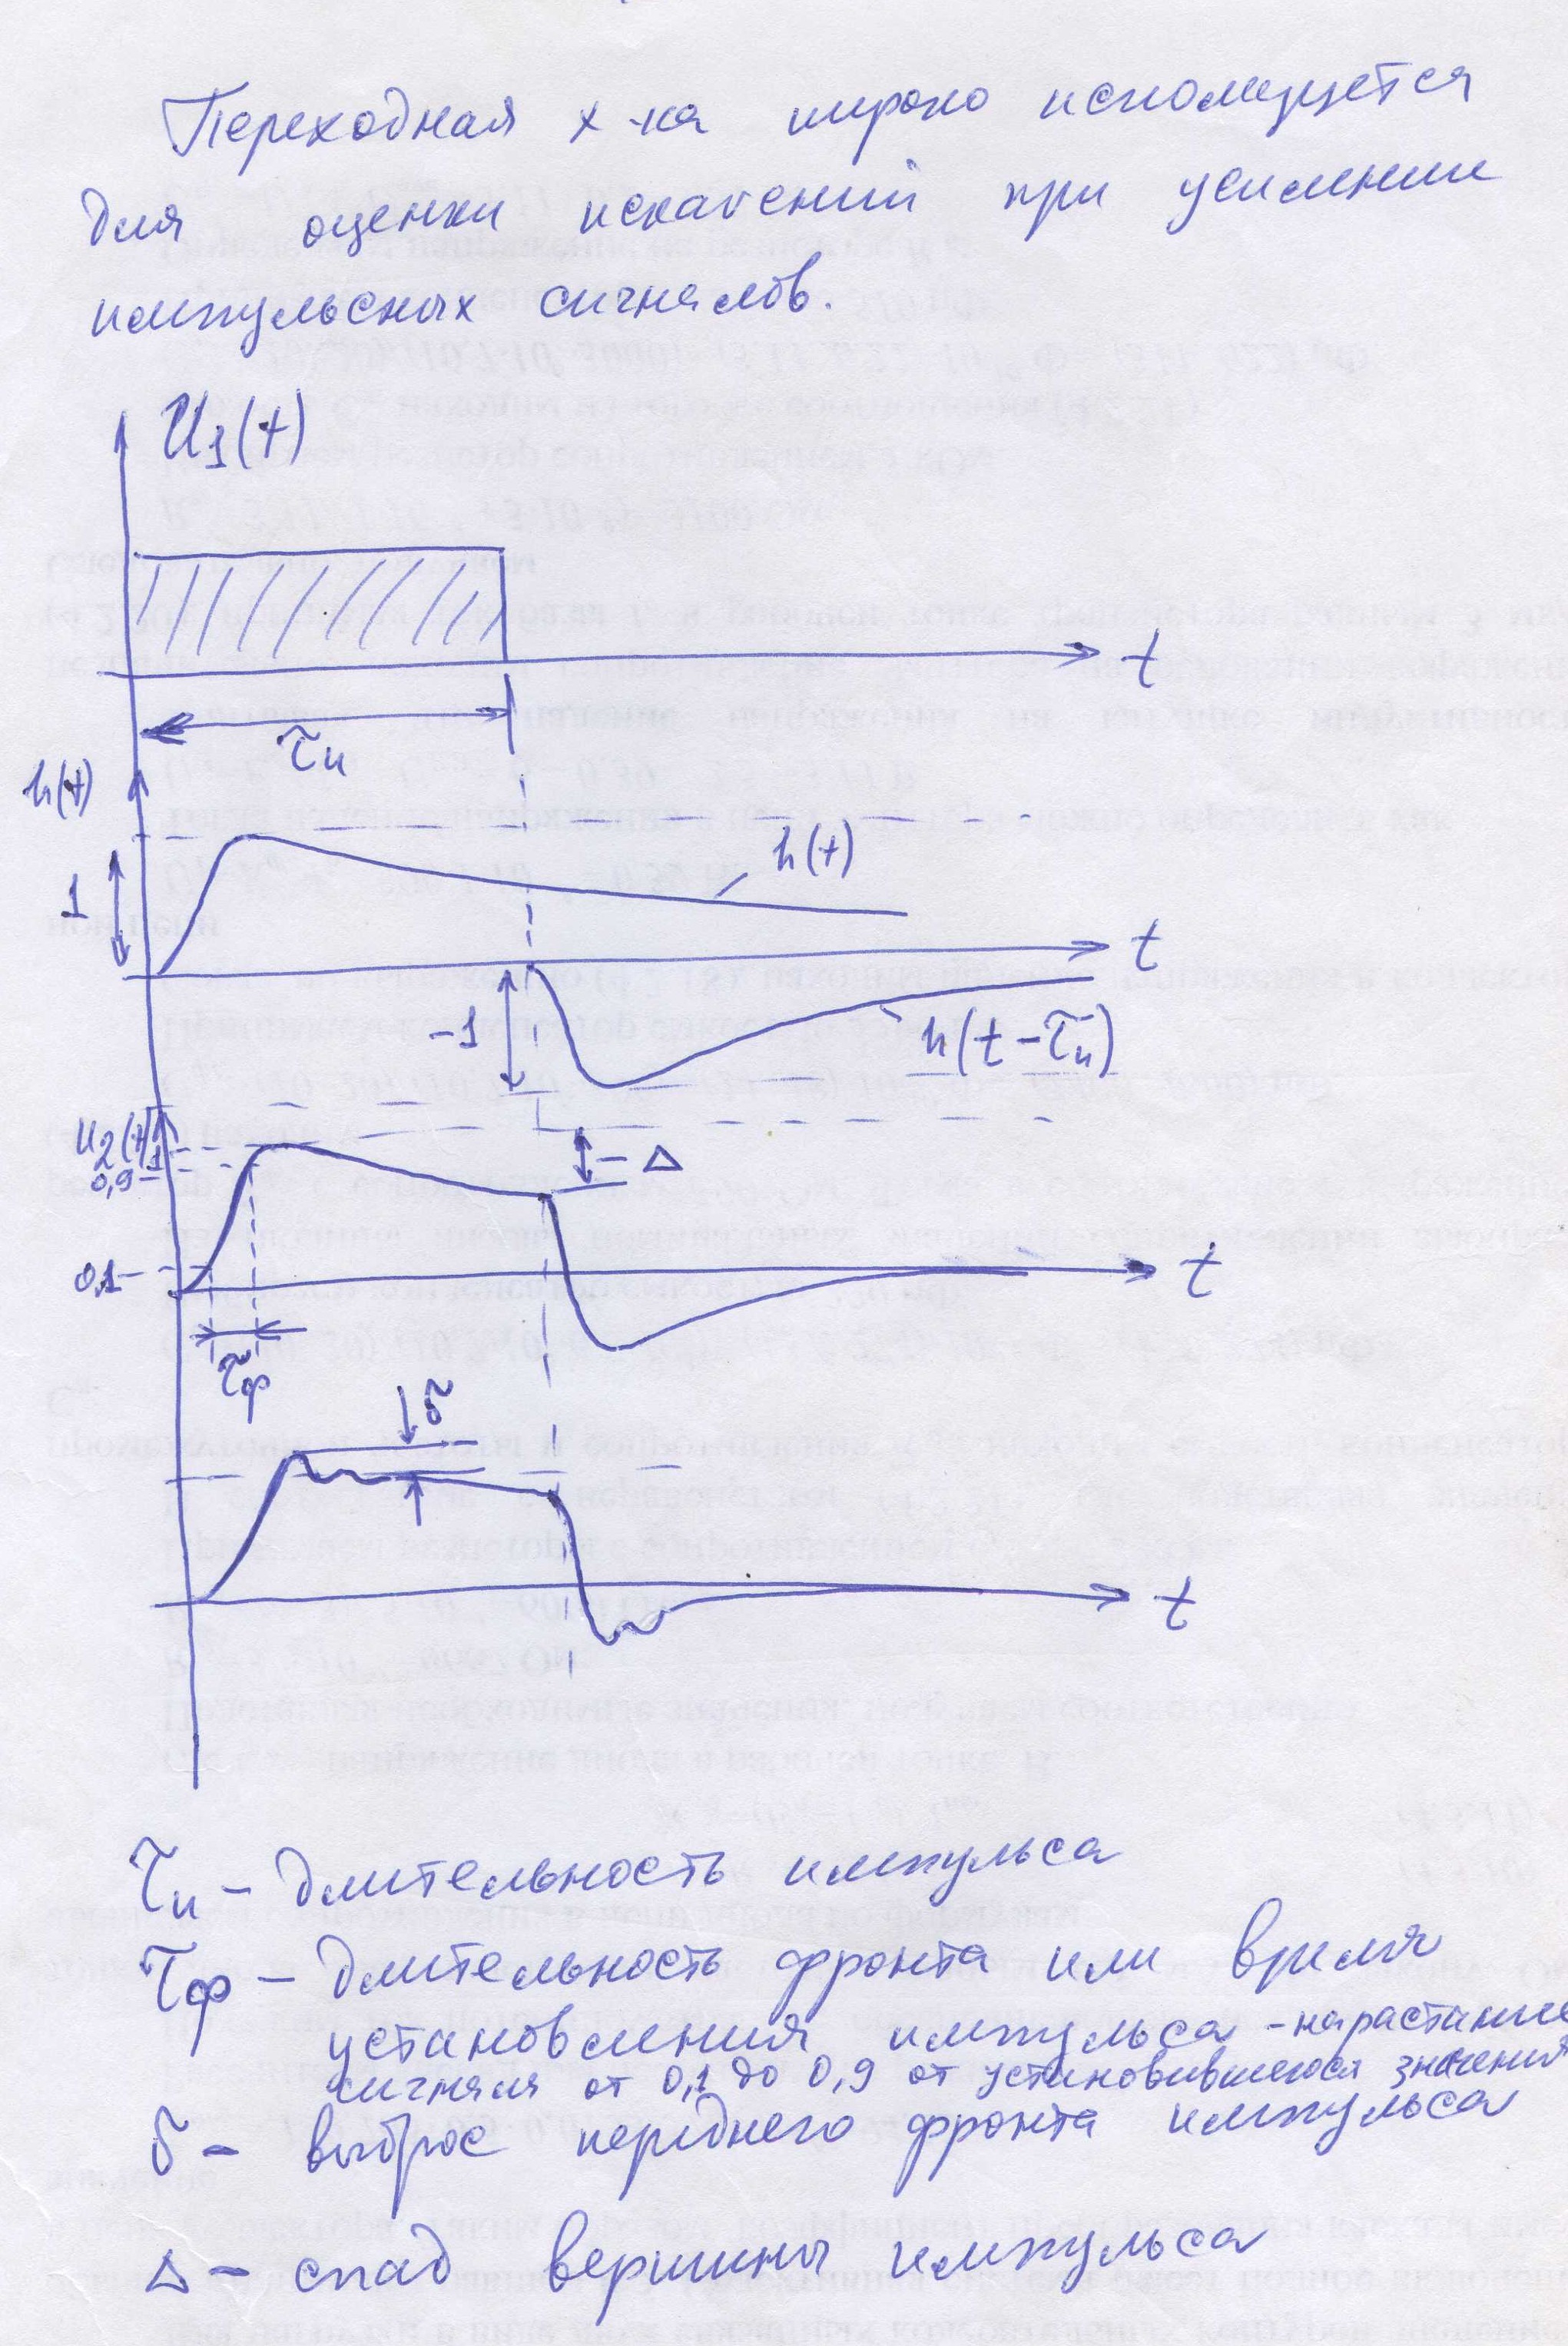 Переходная х-ка широко используется
для оценки искажений при усилении
импульсных сигналов.
U₁(t)
t
τи
h(t)
1
h(t)
t
-1
h(t-τи)
U₂(t)
1
0,9
Δ
0,1
t
τф
δ
t
τи - длительность импульса
τф - длительность фронта или время
установления импульса - нарастание
сигнала от 0,1 до 0,9 от установившегося значения
δ - выброс переднего фронта импульса
Δ - спад вершины импульса